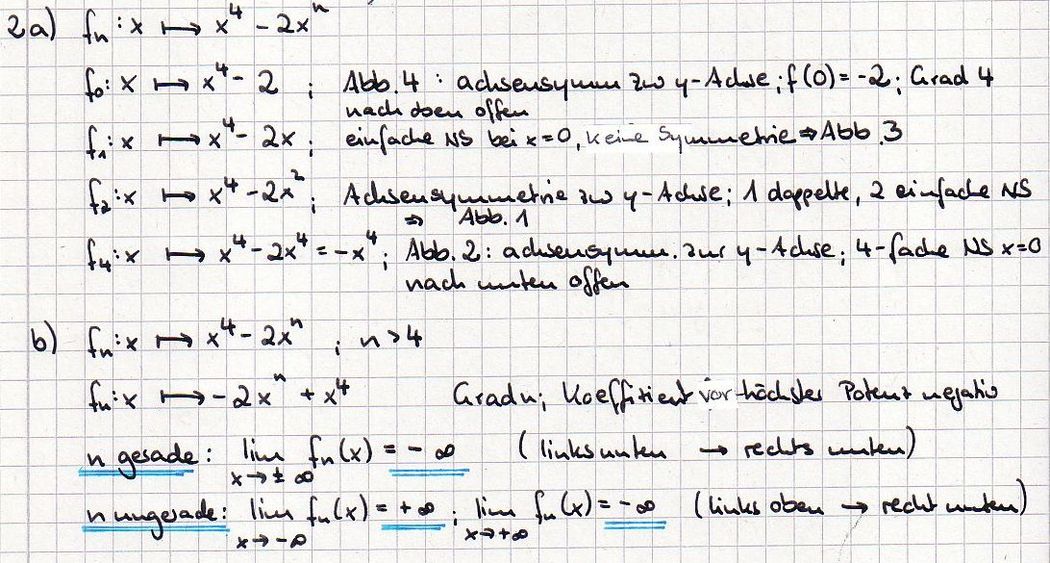 2a) fₙ : x ↦ x⁴ - 2xⁿ
f₀ : x ↦ x⁴ - 2 ; Abb. 4 : achsensymm zur y-Achse ; f(0) = -2 ; Grad 4
nach oben offen
f₁ : x ↦ x⁴ - 2x ; einfache NS bei x=0, keine Symmetrie ⇒ Abb. 3
f₂ : x ↦ x⁴ - 2x² ; Achsensymmetrie zur y-Achse ; 1 doppelte, 2 einfache NS
⇒ Abb. 1
f₄ : x ↦ x⁴ - 2x⁴ = -x⁴ ; Abb. 2 : achsensymm. zur y-Achse ; 4-fache NS x=0
nach unten offen
b) fₙ : x ↦ x⁴ - 2xⁿ ; n > 4
fₙ : x ↦ -2xⁿ + x⁴ Grad n ; Koeffizient vor höchster Potenz negativ
n gerade : lim fₙ(x) = -∞ (links unten → rechts unten)
x → ±∞
n ungerade : lim fₙ(x) = +∞ ; lim fₙ(x) = -∞ (links oben → recht unten)
x → -∞ x → +∞